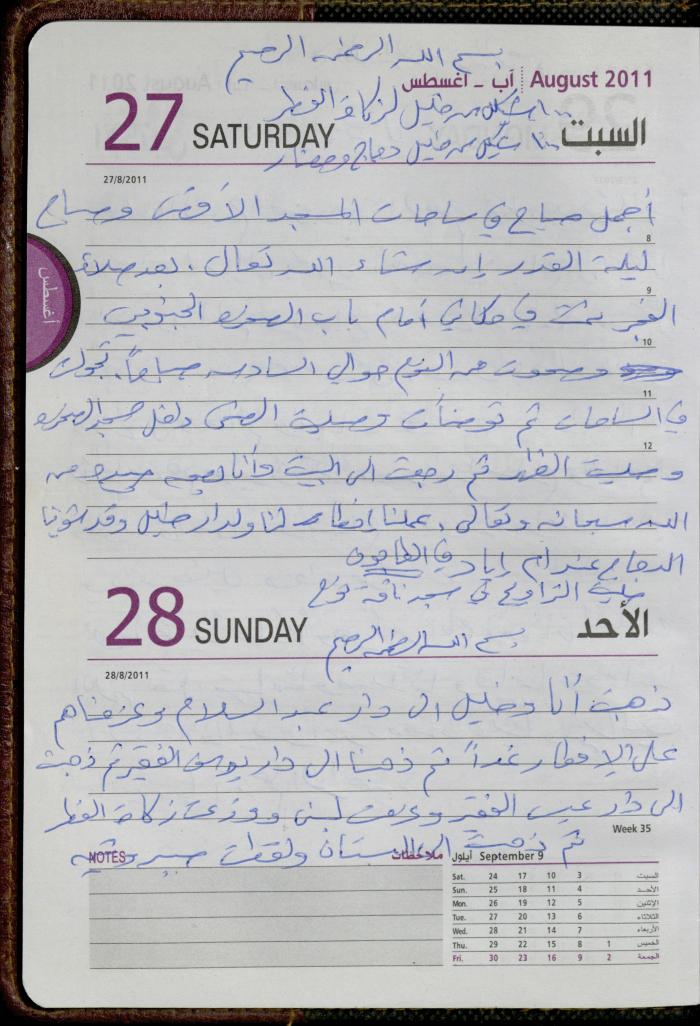 بسم الله الرحمن الرحيم
آب - أغسطس August 2011
27 SATURDAY السبت
١٠٠ شيكل من خليل لزكاة الفطر
١٠٠ شيكل من خليل دجاج وخضار
27/8/2011
أجمل صباح في ساحات المسجد الأقصى وصباح
8
ليلة القدر إن شاء الله تعالى . بعد صلاة
9
الفجر نمت في مكاني أمام باب الصخرة الجنوبي
10
وصحوت من النوم حوالي السادسة صباحاً. تجولت
11
في الساحات ثم توضأت وصليت الضحى داخل مسجد الصخرة
12
وصليت الظهر ثم رجعت الى البيت وأنا
الله سبحانه وتعالى . عملنا إفطار لنا ولدار خليل وقد شوينا
الدجاج عند ام إياد في الطابون
صليت التراويح في مسجد
28 SUNDAY الأحد
بسم الله الرحمن الرحيم
28/8/2011
ذهبت أنا وخليل الى دار عبد السلام وعزمناهم
على الإفطار غداً ثم ذهبنا الى دار يوسف الفقير ثم ذهبت
الى دار الفقير ووزعت زكاة الفطر
Week 35
ثم ذهبت الى البستان ولقطت صبر
NOTES ملاحظات
أيلول September 9
Sat. 24 17 10 3 السبت
Sun. 25 18 11 4 الأحد
Mon. 26 19 12 5 الإثنين
Tue. 27 20 13 6 الثلاثاء
Wed. 28 21 14 7 الأربعاء
Thu. 29 22 15 8 1 الخميس
Fri. 30 23 16 9 2 الجمعة
أغسطس